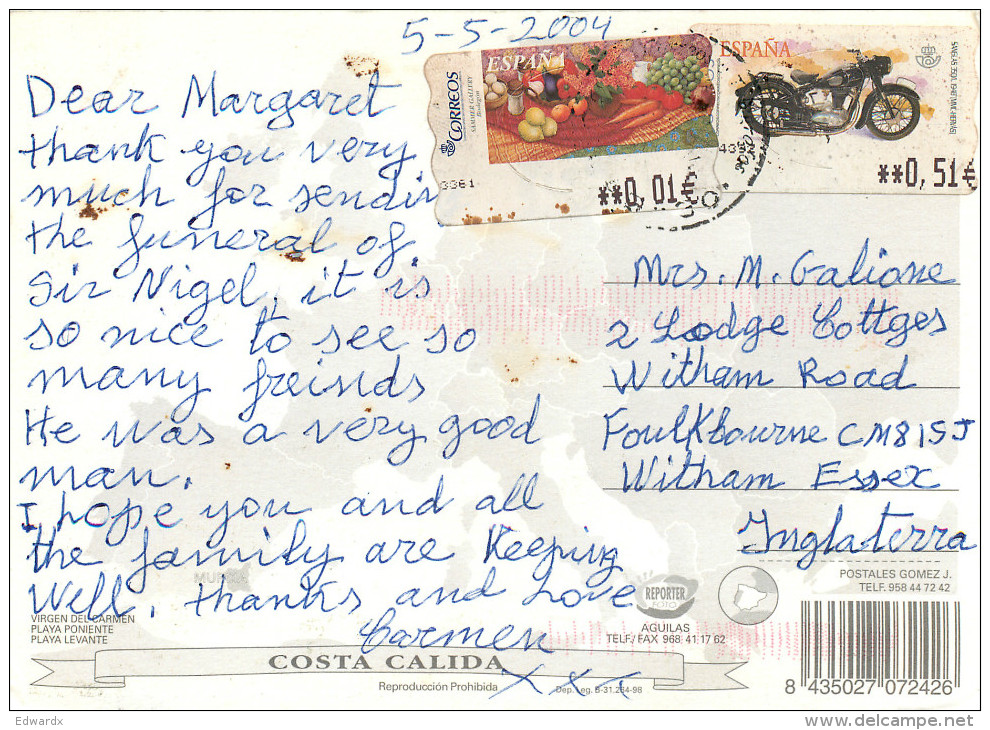 5-5-2004
Dear Margaret
thank you very
much for sendin
the funeral of
Sir Nigel, it is
so nice to see so
many freinds
He was a very good
man.
I hope you and all
the family are Keeping
Well. thanks and Love
Carmen
X X X
ESPAÑA
CORREOS
SAMMER GALLERY
Bodegón
3361
**0,01€
ESPAÑA
**0,51€
Mrs. M. Galione
2 Lodge Cottges
Witham Road
Foulkbourne CM81SJ
Witham Essex
Inglaterra
VIRGEN DEL CARMEN
PLAYA PONIENTE
PLAYA LEVANTE
REPORTER
FOTO
AGUILAS
TELF./FAX 968 41 17 62
POSTALES GOMEZ J.
TELF. 958 44 72 42
COSTA CALIDA
Reproducción Prohibida
Dep. Leg. B-31.264-98
8 435027 072426
Edwardx
delcampe.net